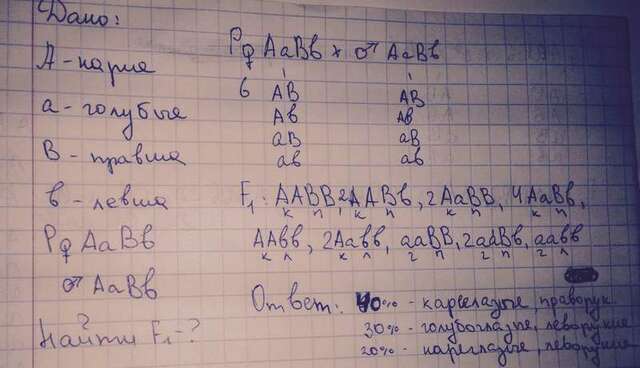 Дано:
А - карие
а - голубые
В - правша
в - левша
Р ♀ АаВв
♂ АаВв
Найти F₁ - ?
Р ♀ АаВв × ♂ АаВв
АВ АВ
Ав Ав
аВ аВ
ав ав
F₁: ААВВ, 2ААВв, 2АаВВ, 4АаВв,
к п к п к п к п
ААвв, 2Аавв, ааВВ, 2ааВв, аавв
к л к л г п г п г л
Ответ: 40% - кареглазые, праворук.
30% - голубоглазые, леворукие
20% - кареглазые, леворукие